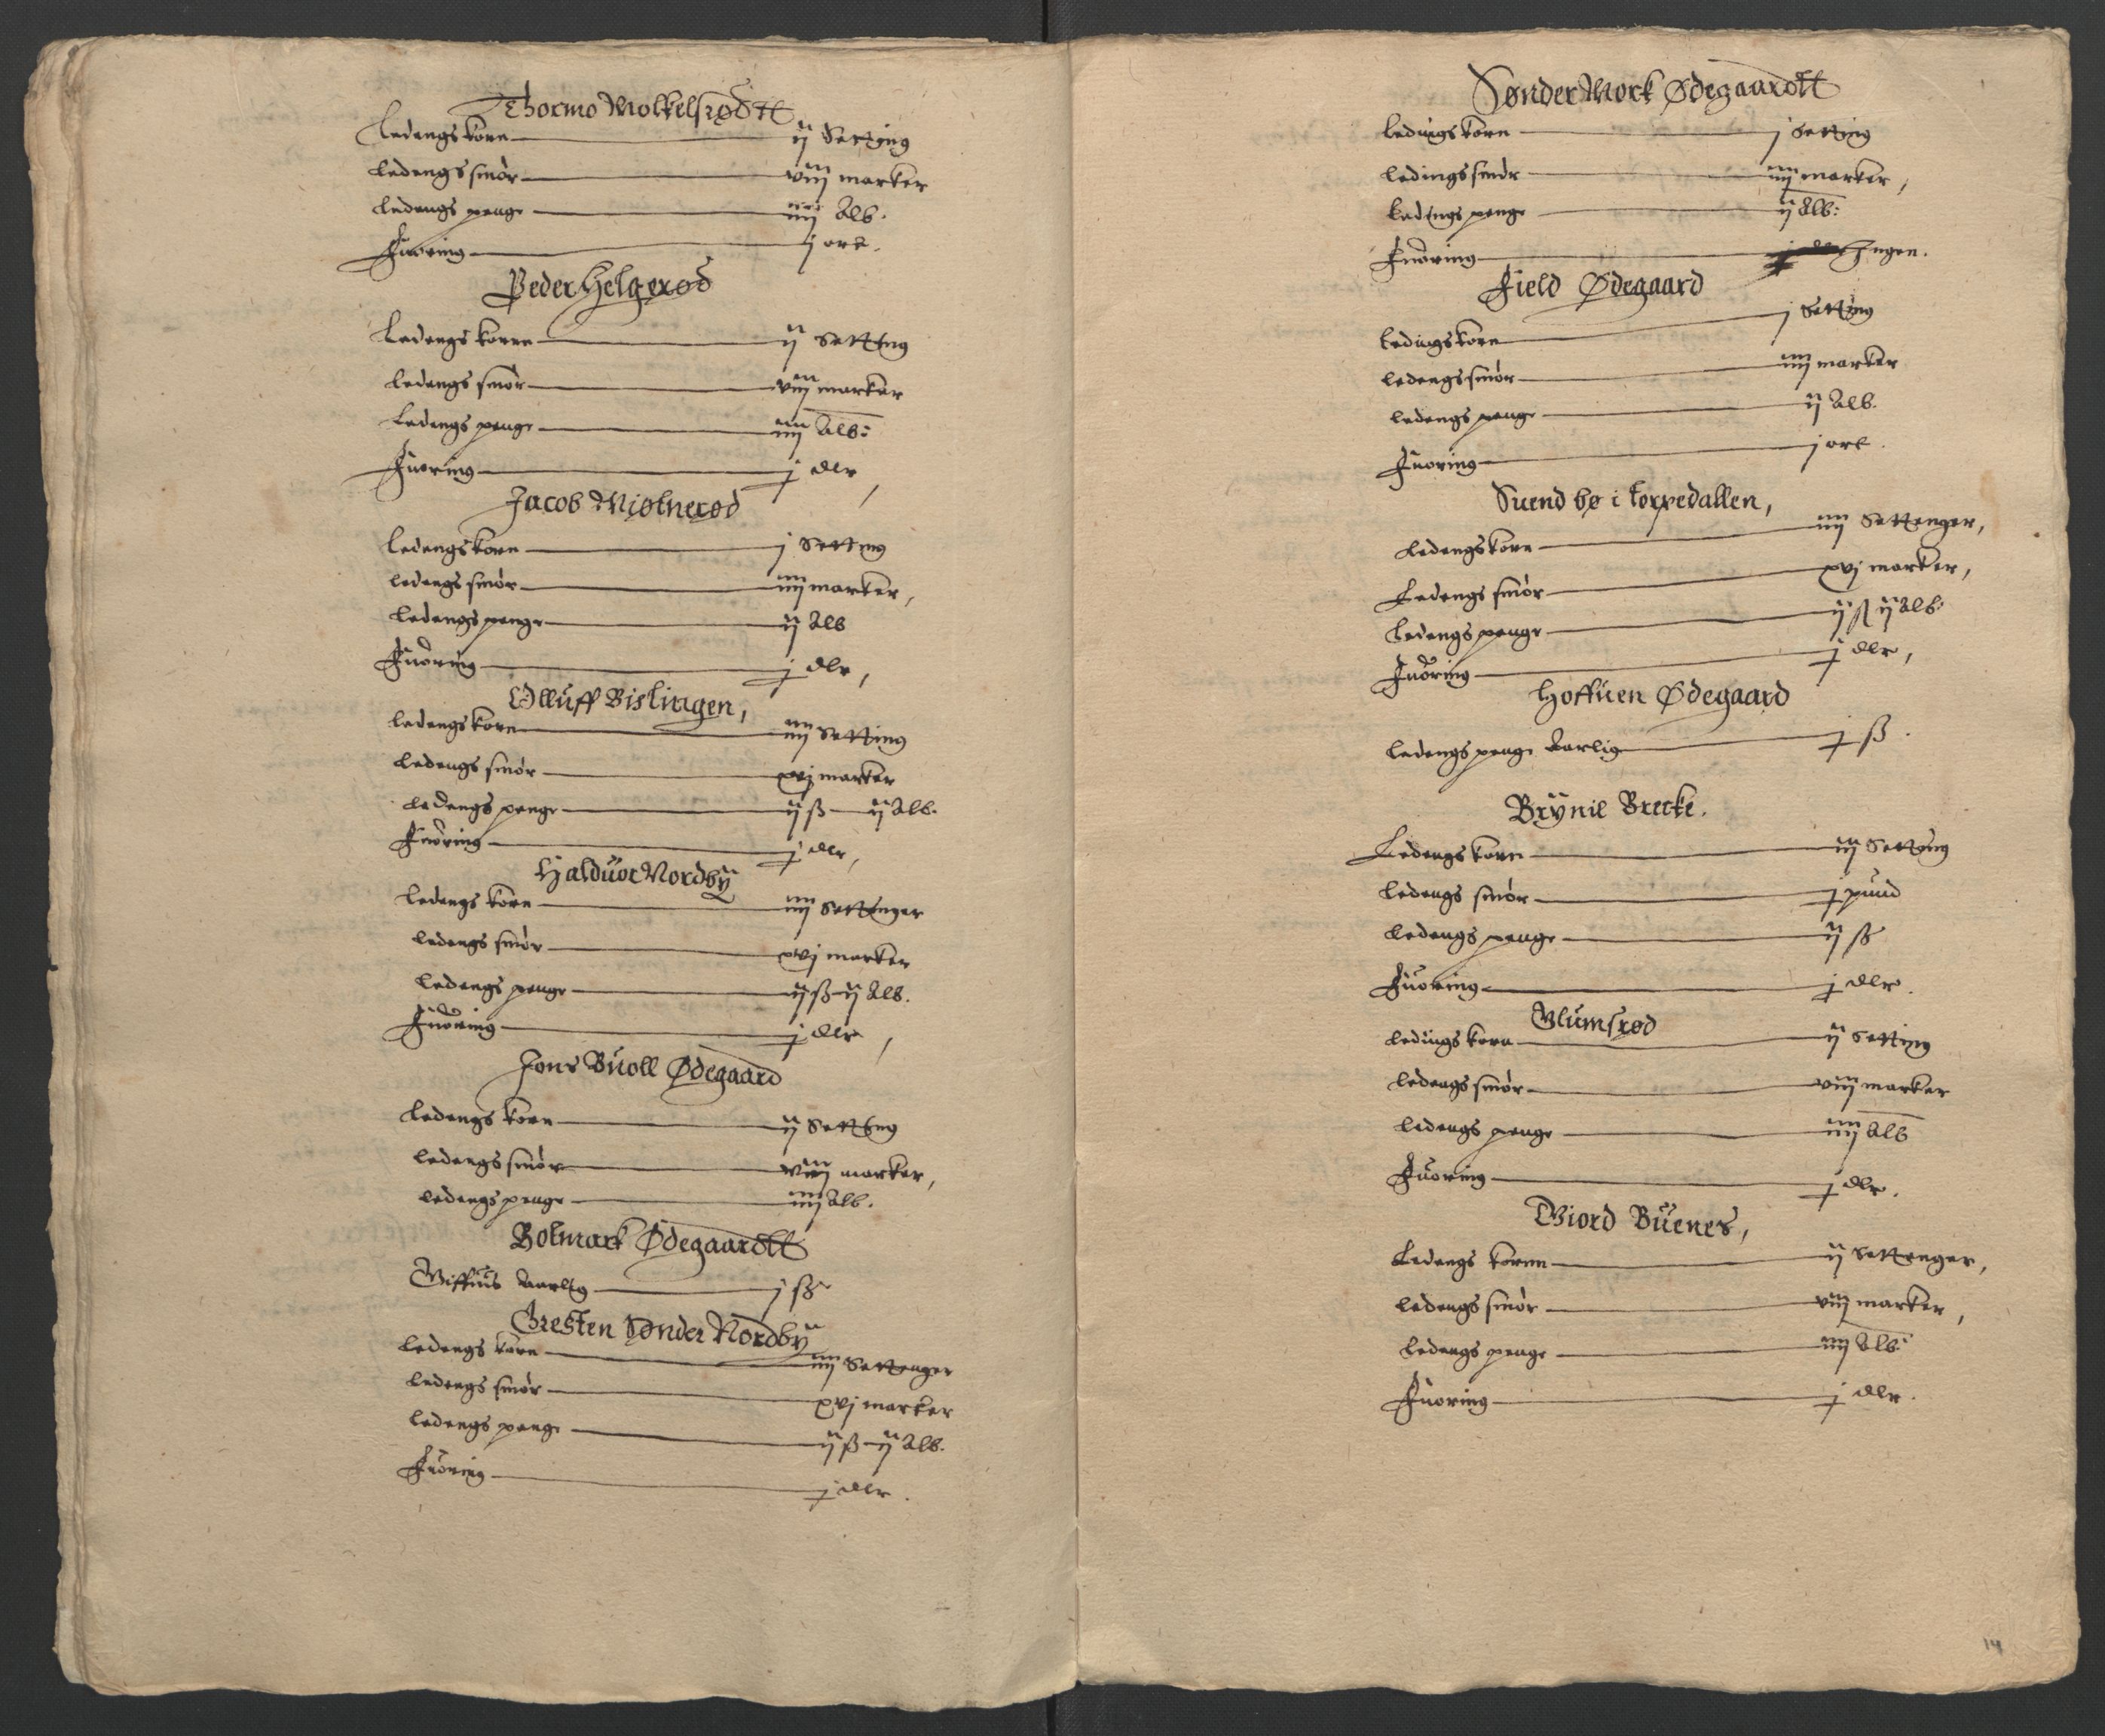 Thormo Molkelsrødtt
Ledengs korn — ij Setting
Ledengs smør — viij marker
Ledengs penge — iiij Alb.
Fuoring — j ort.
Peder Helgerød
Ledengs kornn — ij Setting
Ledengs smør — viij marker
Ledengs penge — iiij Alb:
Fuoring — j dlr,
Jacob Miølnerød
Ledengs korn — j Setting
Ledengs smør — iiij marker,
Ledengs penge — ij Alb
Fuoring — j dlr,
Olluff Bislingen,
Ledengs korn — iiij Setting
Ledengs smør — xvj marker
Ledengs penge — ij ß — ij Alb.
Fuoring — j dlr,
Halduor Nordbÿ
Ledengs korn — iiij Settinger
Ledengs smør — xvj marker
Ledengs penge — ij ß — ij Alb.
Fuoring — j dlr,
Jons Buoll Ødegaard
Ledengs korn — ij Setting
Ledengs smør — viij marker,
Ledengs penge — iiij Alb.
Bolmark Ødegaardtt
Giffuis Aarlig — j ß
Gresten Sønder Nordbÿ
Ledengs korn — iiij Settenger
Ledengs smør — xvj marker
Ledengs penge — ij ß — ij Alb.
Fuoring — j dlr.
Sønder Mork Ødegaardtt
Ledings korn — j Setting
Ledings smør — iiij marker,
Ledings penge — ij Alb:
Fuoring — Ingen.
Field Ødegaard
Ledings korn — j Setting
Ledengs smør — iiij marker
Ledengs penge — ij Alb.
Fuoring — j ort.
Suend bø i torpedallen,
Ledengs korn — iiij Settenger,
Ledengs smør — xvj marker,
Ledengs penge — ij ß ij Alb:
Fuoring — j dlr,
Hoffuen Ødegaard
Ledengs penge Aarlig — j ß.
Brÿnil Brecke.
Ledengs korn — iij Setting
Ledengs smør — j pund
Ledengs penge — ij ß
Fuoring — j dlr.
Glumsrød
Ledings korn — ij Setting
Ledengs smør — viij marker
Ledengs penge — iiij Alb
Fuoring — j dlr.
Giord Buenes,
Ledengs kornn — ij Settenger,
Ledengs smør — viij marker,
Ledengs penge — iiij Alb:
Fuoring — j dlr.
14